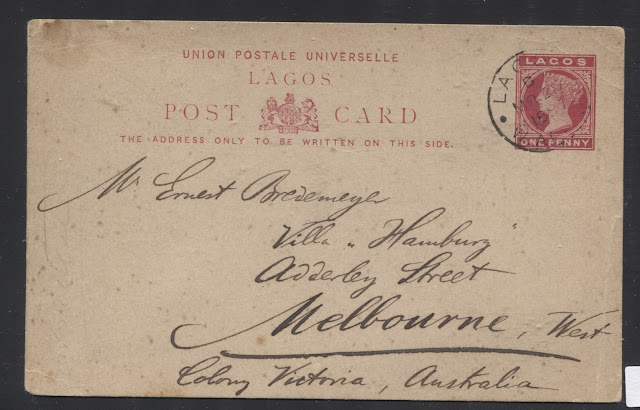 UNION POSTALE UNIVERSELLE
LAGOS
POST CARD
THE ADDRESS ONLY TO BE WRITTEN ON THIS SIDE.
LAGOS
ONE PENNY
LAG
Mr Ernest Bredemeyer
Villa „Hamburg"
Adderley Street
Melbourne, West
Colony Victoria, Australia